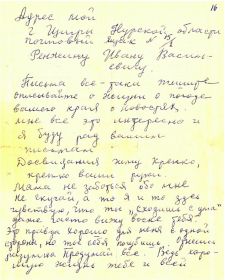 16
Адрес мой
г Щигры Курской области
почтовый ящик № 
Ренжину Ивану Василь-
евичу.
Письма все-таки пишите
описывайте о жизни о погоде
вашего края о новостях,
мне все это интересно и
я буду рад вашим
письмам.
Досвидания жму крепко,
крепко ваши руки.
Мама не заботься обо мне
не скучай, а то я и то здесь
чувствую, что ты "сходишь с ума"
даже часто вижу во сне тебя.
Это правда хорошо для меня с одной
стороны, но ты себя погубишь. Очень
разумно продумай все. Ведь хоро-
шую жизнь тебе и всей